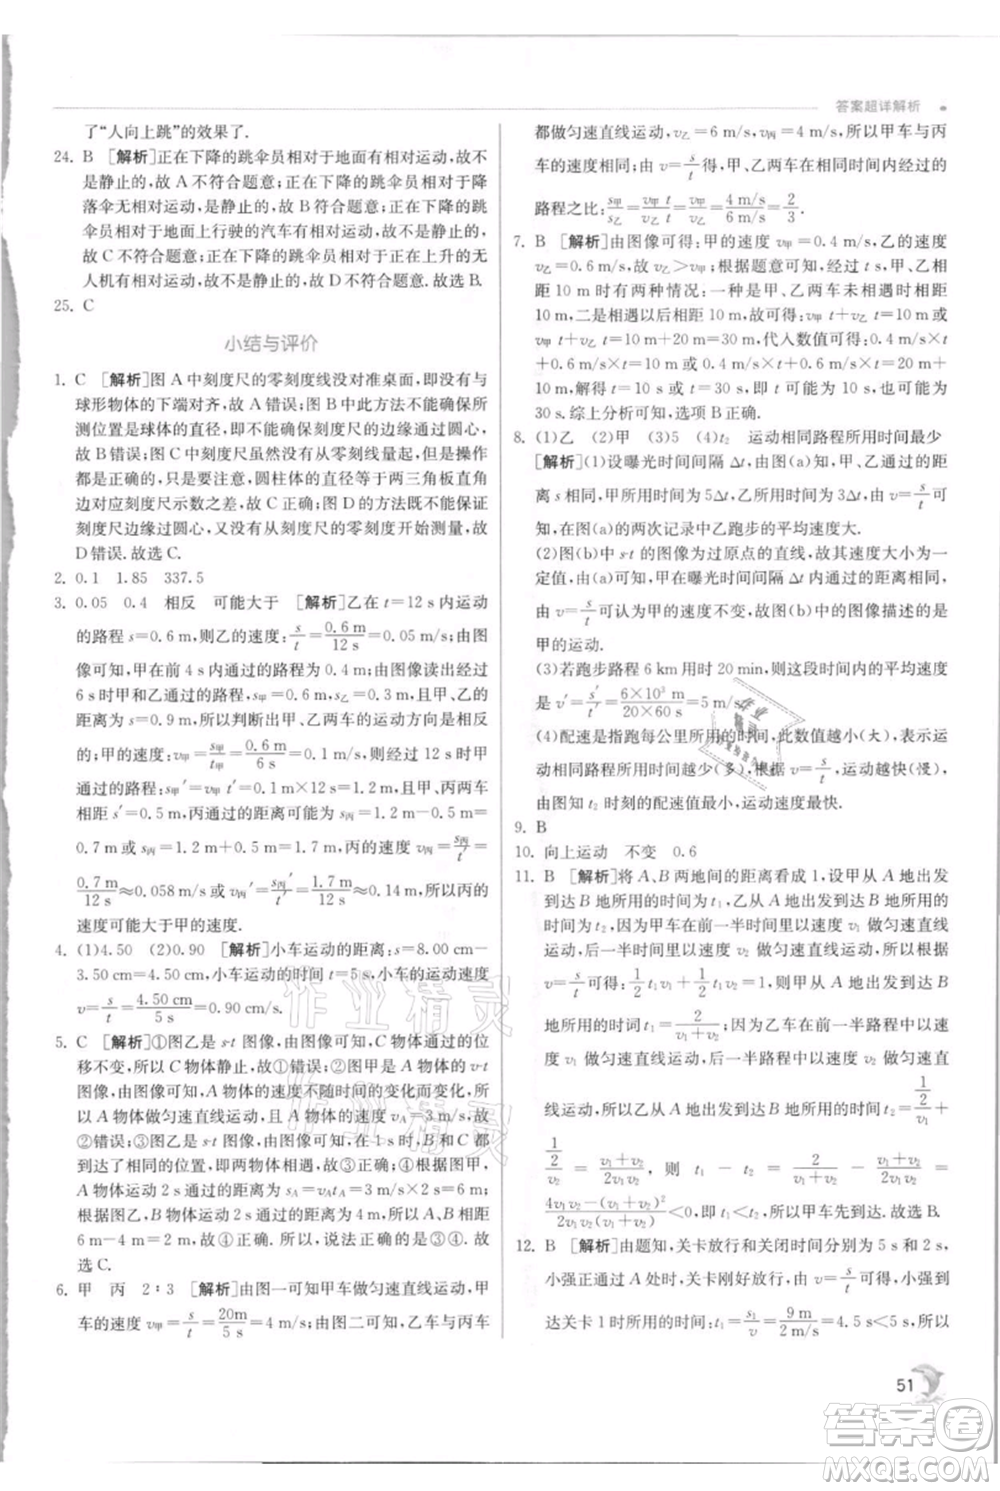 答案超详解析
了“人向上跳”的效果了.
24. B [解析]正在下降的跳伞员相对于地面有相对运动,故不
是静止的,故 A 不符合题意;正在下降的跳伞员相对于降
落伞无相对运动,是静止的,故 B 符合题意;正在下降的跳
伞员相对于地面上行驶的汽车有相对运动,故不是静止的,
故 C 不符合题意;正在下降的跳伞员相对于正在上升的无
人机有相对运动,故不是静止的,故 D 不符合题意.故选 B.
25. C
小结与评价
1. C [解析]图 A 中刻度尺的零刻度线没对准桌面,即没有与
球形物体的下端对齐,故 A 错误;图 B 中此方法不能确保刻
度尺测量的是球体的直径,即不能确保刻度尺的边缘通过圆心,
故 B 错误;图 C 中刻度尺虽然没有从零刻线量起,但操作
方法符合题意,圆柱体的直径等于两三角板直角
边对应刻度尺示数之差,故 C 正确;图 D 的方法不能保证
刻度尺边缘过圆心,又没有从刻度尺的零刻度开始测量,故
D 错误.故选 C.
2. 0.1 1.85 337.5
3. 0.05 0.4 相反 可能大于 [解析]乙在 t=12 s内运动
的路程 s=0.6 m,则乙的速度:s/t=0.6 m/12 s=0.05 m/s;由图
像可知,甲在前 4 s 内通过的路程为 0.4 m;由图像读出经过
6 s 时甲和乙通过的路程,s甲=0.6 m,s乙=0.3 m,且甲、乙两车
的距离为 0.9 m,所以判断出甲、乙两车的运动方向是相反
的;甲的速度:v甲=s甲/t甲=0.6 m/6 s=0.1 m/s;当 t′=12 s 时甲
通过的路程:s甲′=v甲t′=0.1 m×12 s=1.2 m,且甲、丙两车
相距 0.5 m,则 s丙=1.2 m-0.5 m=0.7 m,丙通过的路程是
0.7 m或 s丙=1.2 m+0.5 m=1.7 m,丙的速度:v丙=s丙/t′=
0.7 m/12 s≈0.058 m/s 或 v丙=s丙/t′=1.7 m/12 s≈0.14 m/s.所以丙的
速度可能大于甲的速度.
4. (1)4.50 (2)0.90 [解析]小车运动的距离:s=8.00 cm-
3.50 cm=4.50 cm,小车运动的时间 t=5 s,小车的运动速度
v=s/t=4.50 cm/5 s=0.90 cm/s.
5. C [解析]①图乙是 s-t 图像,由图可知,C 物体运动的位
移不变,所以 C 物体静止,故①错误;②图甲是 A 物体的v-t
图像,从图中可知,A 物体的速度不随时间的变化而变化,所
以 A 物体做匀速直线运动,且 A 物体的速度 vA=3 m/s,故
②错误;③图乙是 s-t 图像,由图可知,在 1 s 时,B 和 C 处
于相同的位置,即两物体相遇,所以③正确;④根据图甲得
到,A 物体运动 2 s 通过的路程为 sA=vAtA=3 m/s×2 s=6 m;
根据图乙,B 物体运动 2 s 运动的距离为 6 m,所以 A、B 物
体在 0~2 s 时通过的路程相等,所以④正确;故③④正确.故
选 C.
6. 甲 丙 2∶3 [解析]由图一可知甲车做匀速直线运动,甲
车的速度 v甲=s/t=20m/5 s=4 m/s;由图二可知,甲车与乙车
都做匀速直线运动,v乙=6 m/s,v丙=4 m/s,所以甲车与丙车
的速度相同;由 v=s/t可得,甲、乙两车在相同时间内经过的
路程之比:s甲/s乙=v甲t/v乙t=v甲/v乙=4 m/s/6 m/s=2/3.
7. B [解析]由图像可得:甲的速度 v甲=0.4 m/s,乙的速度
v乙=0.6 m/s,故 v乙>v甲;根据题意可知,经过时间 t,甲、乙
相距 10 m 时有两种情况:一是甲、乙两车未相遇时相距
10 m,二是相遇以后相距 10 m,故可得:v甲 t+v乙 t+
10 m=30 m 或 v甲 t+v乙 t-10 m=30 m;代入数值可得:0.4 m/s×t
+0.6 m/s×t+10 m=30 m 或 0.4 m/s×t+0.6 m/s×t-
10 m=30 m,解得 t=20 s 或 t=40 s,则时间 t 可能为 20 s,不可能为
30 s.综上分析可知,选项 B 正确.
8. (1)乙 (2)甲 (3)5 (4)t2 运动相同路程所用时间最少
[解析](1)设曝光时间间隔 Δt,
离 s 所用的时间为 5Δt,
根据 v=s/t可知,在图(a)的两次记录中乙跑步的平均速度大.
(2)图(b)中 s-t 的图像为过原点的直线,故速度大小为一
定值,由图(a)可知,甲每两次曝光时间间隔内的路程相等,由
v=s/t可认为甲的速度不变,故图(b)中的图像描述的是
甲的运动.
(3)若跑步路程 6 km 用时 20 min,则这段时间内的平均速度
是 v′=s′/t′=6×10³ m/20×60 s=5 m/s.
(4)配速是指跑每公里所用的时间,此数值越小(大),表示运
动相同路程所用时间越少(多),根据 v=s/t,运动越快(慢),
由图知 t2 时刻的配速值最小,运动速度最快.
9. B
10. 向上运动 不变 0.6
11. B [解析]将 A、B 两地间的距离看成 1,设甲车由 A 地出
发到达 B 地所用的时间为 t1,乙车由 A 地出发到达 B 地所
用的时间为 t2,因为甲车在前一半时间内以速度 v1 做匀速直线
运动,后一半时间内以速度 v2 做匀速直线运动,
所以由 v=s/t可得,甲车由 A 地出发到达 B
地所用的时间 t1=2/(v1+v2);因为乙车在前一半路程中以速
度 v1 做匀速直线运动,后一半路程中以速度 v2 做匀速直
线运动,所以乙车从 A 地出发到达 B 地所用的时间 t2=(1/2)/v1+
(1/2)/v2=(v1+v2)/2v1v2, 则 t1-t2=2/(v1+v2)-(v1+v2)/2v1v2=
(4v1v2-(v1+v2)²)/2v1v2(v1+v2)<0,即 t1<t2,所以甲车先到达,故选 B.
12. B [解析]由题知,关卡开放和关闭时间分别为 5 s 和 2 s,
小强正通过 A 处时,关卡刚好开放,由 v=s/t可得,小强到
达关卡 1 时所用的时间:t1=s1/v=9 m/2 m/s=4.5 s<5 s,所以
51
作业精灵
作业精灵
答案圈
MXQE.COM